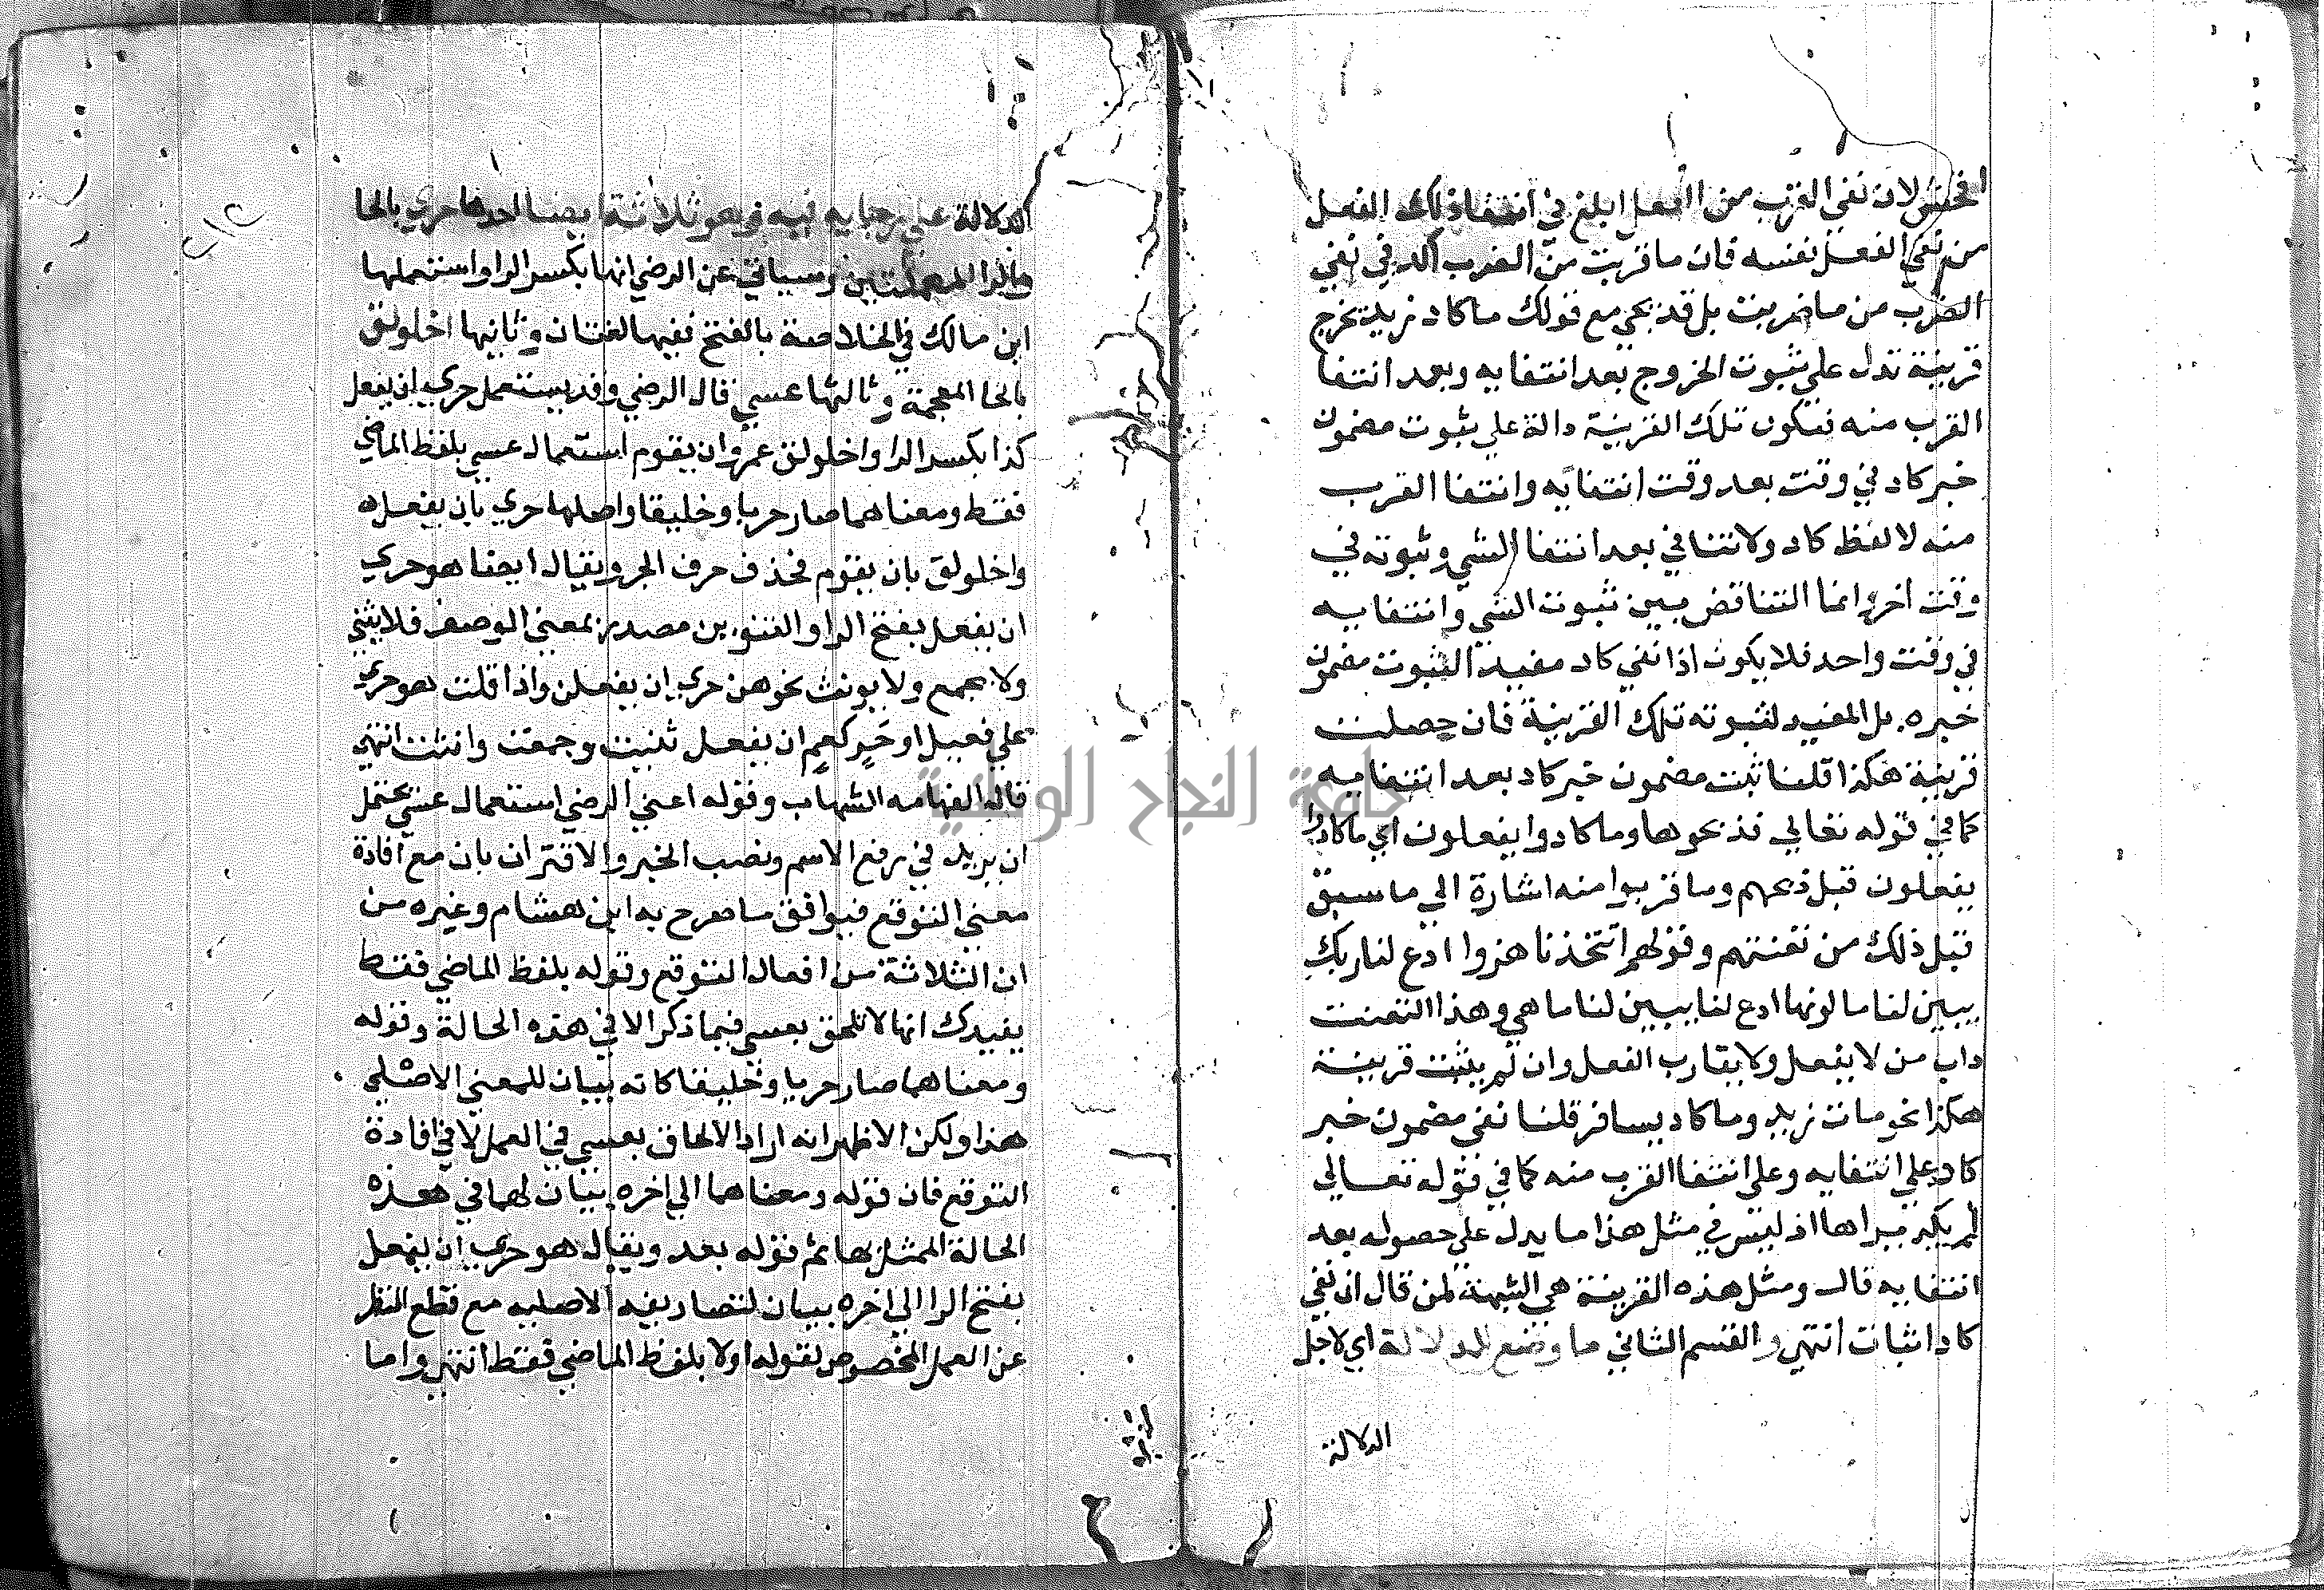 لان نفي القرب من الفعل ابلغ في انتفا ذلك الفعل
من نفي الفعل نفسه فان ما قربت من الضرب اكد في نفي
الضرب من ما ضربت بل قد يجي مع قولك ما كاد زيد يخرج
قرينة تدل علي ثبوت الخروج بعد انتفايه وبعد انتفا
القرب منه فتكون تلك القرينة دالة علي ثبوت مضمون
خبر كاد في وقت بعد وقت انتفايه وانتفا القرب
منه لا لفظ كاد ولا تنافي بعد انتفا الشي وثبوته في
وقت اخر وانما التناقض بين ثبوت الشي وانتفايه
في وقت واحد فلا يكون اذا نفي كاد مفيد الثبوت مضمون
خبره بل المفيد لثبوته تلك القرينة فان حصلت
قرينة هكذا قلنا ثبت مضمون خبر كاد بعد انتفايه
كما في قوله تعالي فذبحوها وما كادوا يفعلون اي ما كادوا
يفعلون قبل ذبحهم وما قربوا منه اشارة الي ما سبق
قبل ذلك من تعنتهم وقولهم اتتخذنا هزوا ادع لنا ربك
يبين لنا ما لونها ادع لنا يبين لنا ما هي وهذا التعنت
داب من لا يفعل ولا يقارب الفعل وان لم يثبت قرينة
هكذا نحو مات زيد وما كاد يسافر قلنا نفي مضمون خبر
كاد علي انتفايه وعلي انتفا القرب منه كما في قوله تعالي
لم يكد يراها اذ ليس في مثل هذا ما يدل علي حصوله بعد
انتفايه قال ومثل هذه القرينة هي الشبهة لمن قال ان نفي
كاد اثبات انتهي والقسم الثاني ما وضع للدلالة اي لاجل
الدلالة
الدلالة علي رجايه فيه وهو ثلاثة ايضا احدها حري بالحا
والرا المهملتين وسياتي عن الرضي انها بكسر الرا واستعملها
ابن مالك في الخلاصة بالفتح ففيها لغتان وثانيها اخلولق
بالخا المعجمة وثالثها عسي قال الرضي وقد يستعمل حري ان يفعل
كذا بكسر الرا واخلولق عمرو ان يقوم استعمال عسي بلفظ الماضي
فقط ومعناهما صار حريا وخليقا واصلها حري بان يفعل
واخلولق بان يقوم فحذف حرف الجر ويقال ايضا هو حري
ان يفعل بفتح الرا والتنوين مصدر بمعني الوصف فلا يثني
ولا يجمع ولا يونث نحو هن حري ان يفعلن واذا قلت هو حري
علي فعيل او حَرٍ كعمٍ ان يفعل ثنيت وجمعت وانثت انتهي
قال الفهامه الشهاب وقوله اعني الرضي استعمال عسي يحتمل
ان يريد في رفع الاسم ونصب الخبر والاقتران بان مع افادة
معني التوقع فيوافق ما صرح به ابن هشام وغيره من
ان الثلاثة من افعال التوقع وقوله بلفظ الماضي فقط
يفيدك انها لا تلحق بعسي فيما ذكر الا في هذه الحالة وقوله
ومعناهما صار حريا وخليقا كانه بيان للمعني الاصلي
هذا ولكن الاظهر انه اراد الالحاق بعسي في العمل لا في افادة
التوقع فان قوله ومعناهما الي اخره بيان لهما في هذه
الحالة الممثل بها ثم قوله بعد ويقال هو حري ان يفعل
بفتح الرا الي اخره بيان لتصاريفه الاصليه مع قطع النظر
عن العمل المخصوص لقوله اولا بلفظ الماضي فقط انتهي واما
جامعة النجاح الوطنية